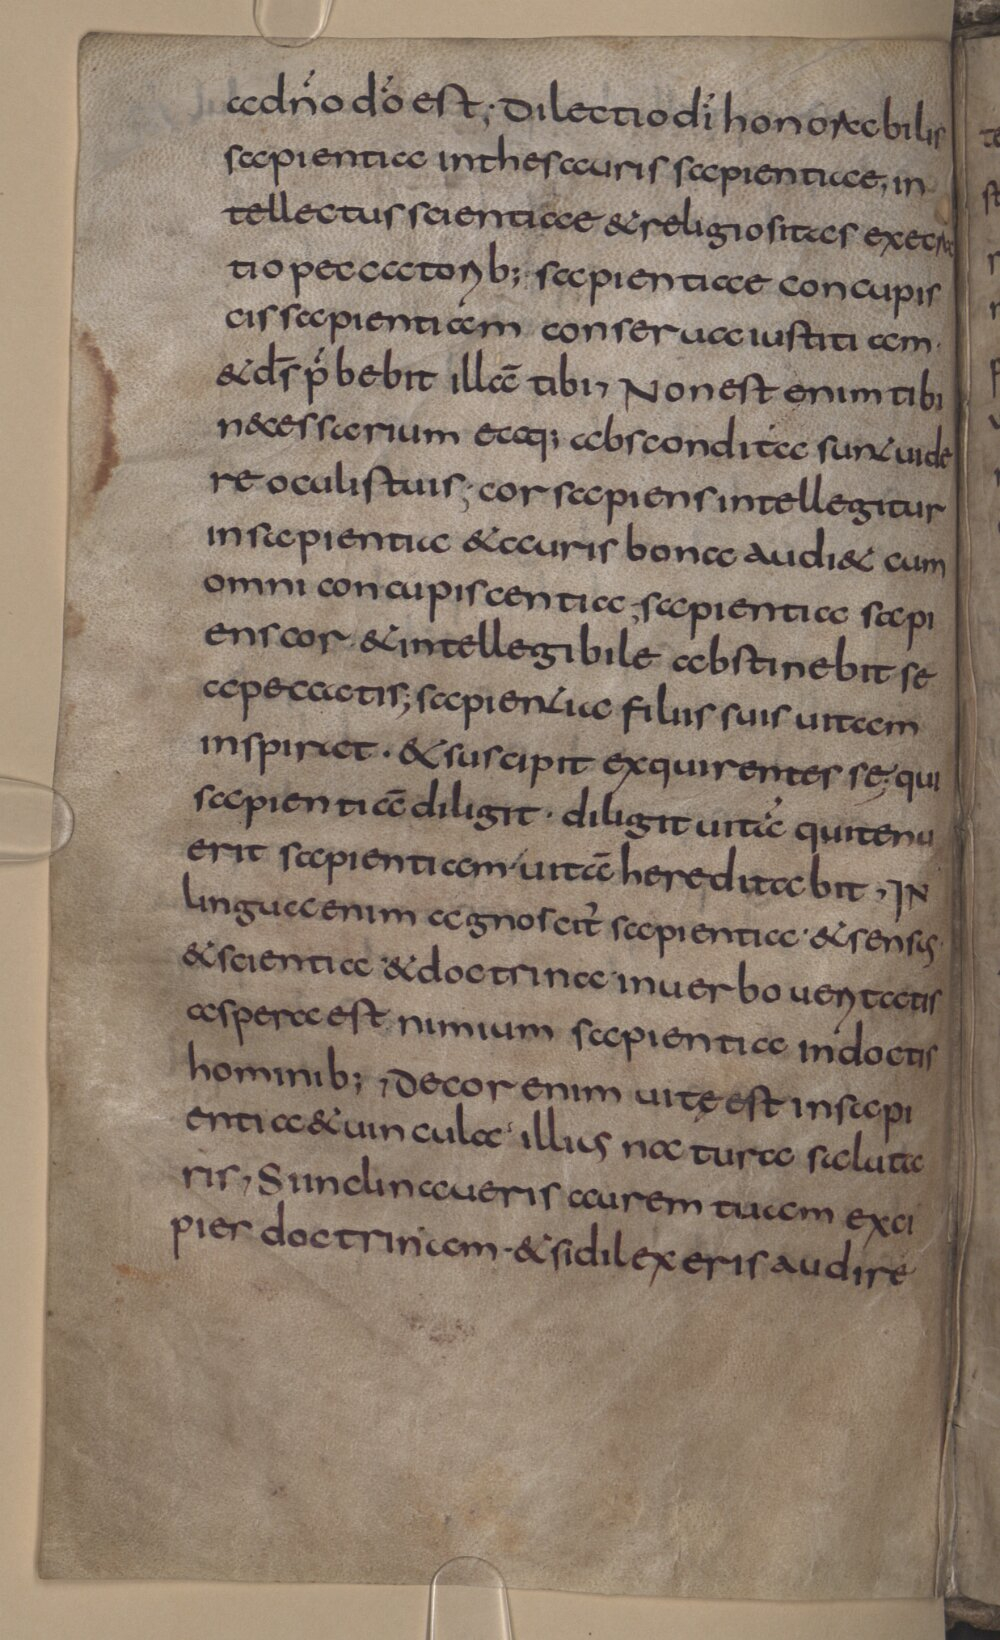 adn̄o dō est; Dilectio dī honorabilis
sapientia inthesauris sapientiae; in
tellectus scientiae & religiositas execra
tio peccatorib; sapientiae concupis
cis sapientiam conserua iustitiam·
& ds̄ p̄bebit illā tibi, Non est enim tibi
n&cessarium eaq; abscondita sunt uide
re oculis tuis; cor sapiens intellegitur
insapientia & auris bona audi& cum
omni concupiscentia; sapientia sapi
ens cor & intellegibile abstinebit se
apeccatis; sapientia filiis suis uitam
inspirat· & suscipit exquirentes se; qui
sapientiā diligit· diligit uitā quitenu
erit sapientiam uitā hereditabit, IN
lingua enim agnoscit̄ sapientia· & sensus
& scientia & doctrina inuerbo ueritatis
aspera est nimium sapientia indoctis
hominib;, Decor enim uitę est insapi
entia & uincula illius nactura saluta
ris, Si inclinaueris aurem tuam exci
pier doctrinam· & si dilexeris audire